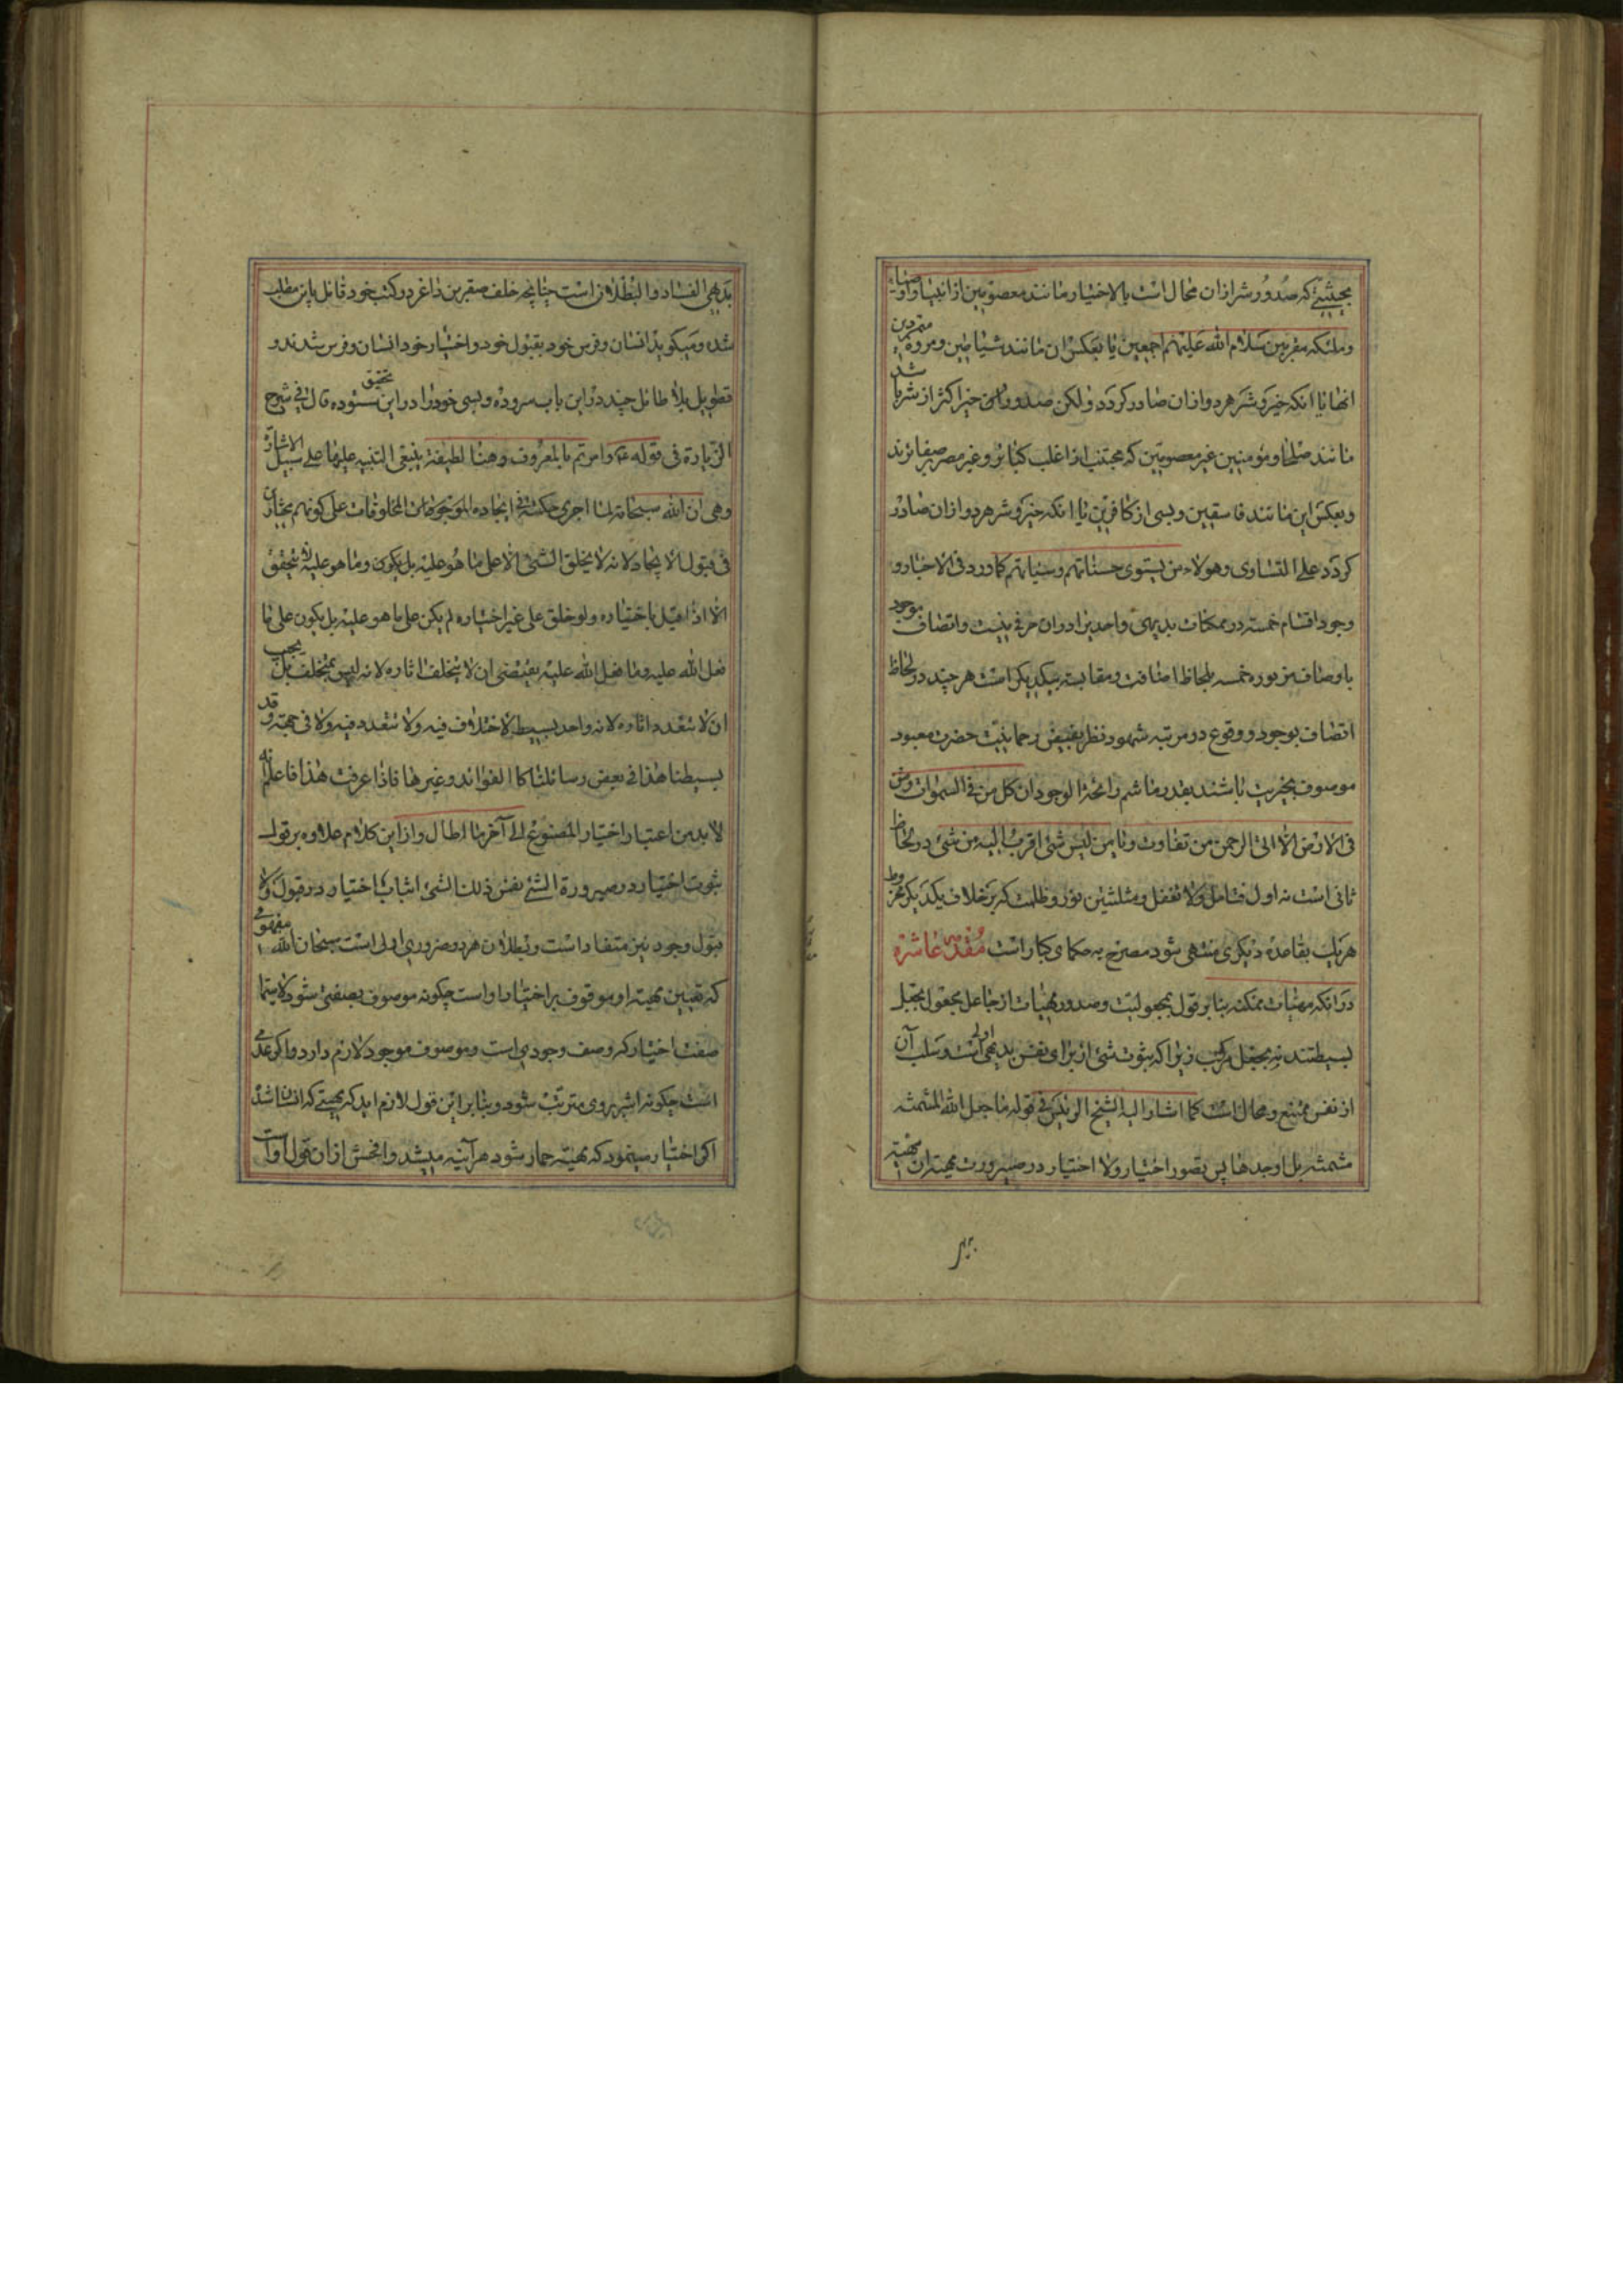 بحیثیتی که صدور شر از ان محال است بالاختیار مانند معصومین از انبیا و اوصیاء
و ملئکه مقربین سلام الله علیهم اجمعین یا بعکس ان مانند شیاطین و مرده متمردین
انها یا انکه خیر و شر هر دو از ان صادر کردد و لکن صدور خیر اکثر از شر باشد
مانند صلحا و مؤمنین غیر معصومین که مجتنب از اغلب کبائر و غیر مصر بصغائرند
و بعکس این مانند فاسقین و بسی از کافرین یا انکه خیر و شر هر دو از ان صادر
کردد علی التساوی و هولاء من یستوی حسناتهم و سیئاتهم کما ورد فی الاخبار و
وجود اقسام خمسه در ممکنات بدیهی و احدیرا در ان حرفی نیست و اتصاف موجود
باوصاف مزبوره خمسه بلحاظ اضافت و مقایسه بیکدیکر است هر چند در لحاظ
اتصاف بوجود و وقوع در مرتبه شهود نظر بفیض رحمانیت حضرت معبود
موصوف بخیریت باشند بقدر ما شم رائحة الوجود ان کل من فی السموات و من
فی الارض الا اتی الرحمن من تفاوت و یا من لیس شئ اقرب الیه من شئ در لحاظ
ثانی است نه اول فتامل و لا تغفل و مثلثین نور و ظلمت که بر خلاف یکدیکر مخروط
هر یک بقاعده دیکری منتهی شود مصرح به حکمای کبار است مقدمه عاشره
در انکه مهیات ممکنه بنا بر قول بمجعولیت و صدور مهیات از جاعل مجعول بجعل
بسیطند نه بجعل مرکب زیرا که ثبوت شئ از برای نفس بدیهی اولی است و سلب آن
از نفس ممتنع و محال است کما اشار الیه الشیخ الرئیس فی قوله ما جعل الله المشمشه
مشمشه بل اوجدها پس تصور اختیار و لا اختیار در صیرورت مهیة ان مهیة
بدیهی الفساد و البطلان است چنانچه خلف مقرین داغر در کتب خود قائل باین مطلب
شده و میکوید انسان و فرس خود بقبول خود و اختیار خود انسان و فرس شدند و
تطویل بلا طائل چند در این باب سروده و بسی خود را در این تحقیق ستوده قال فی شرح
الزیارة فی قوله ع و امرتم بالمعروف و هنا لطیفة ینبغی التنبیه علیها علی سبیل الاشارة
و هی ان الله سبحانه لما اجری حکمته فی ایجاده الموجودات المخلوقات علی کونهم مختارین
فی قبول الایجاد لانه لا یخلق الشئ الا علی ما هو علیه بل یکون و ما هو علیه لا یتحقق
الا اذا قبل باختیاره و لو خلق علی غیر اختیاره لم یکن علی ما هو علیه بل یکون علی ما
فعل الله علیه و ما فعل الله علیه یقتضی ان لا یتخلف اثاره لانه لیس بمختلف بل یجب
ان لا تتعدد اثاره لانه واحد بسیط لا اختلاف فیه و لا تتعدد فیه و لا فی جهته و قد
بسطنا هذا فی بعض رسائلنا کالفوائد و غیرها فاذا عرفت هذا فاعلم انه
لا بد من اعتبار اختیار المصنوع الی آخر ما اطال و از این کلام علاوه بر قول
ثبوت اختیار در صیرورة الشئ نفس ذلک الشئ اثبات اختیار در قول و لا
قبول وجود نیز مستفاد است و بطلان هر دو ضروری اولی است سبحان الله مفهومی
که تعیین مهیة او موقوف بر اختیار او است چکونه موصوف بصفتی شود لا سیما
صفت اختیار که وصف وجودی است و موصوف موجود لازم دارد و اکر عدمی
است چکونه اثر بر وی مترتب شود و بنا بر این قول لازم اید که مهیتی که انسان شد
اکر اختیار مینمود که مهیة حمار شود هر آینه میشد و افحش از ان قول او است